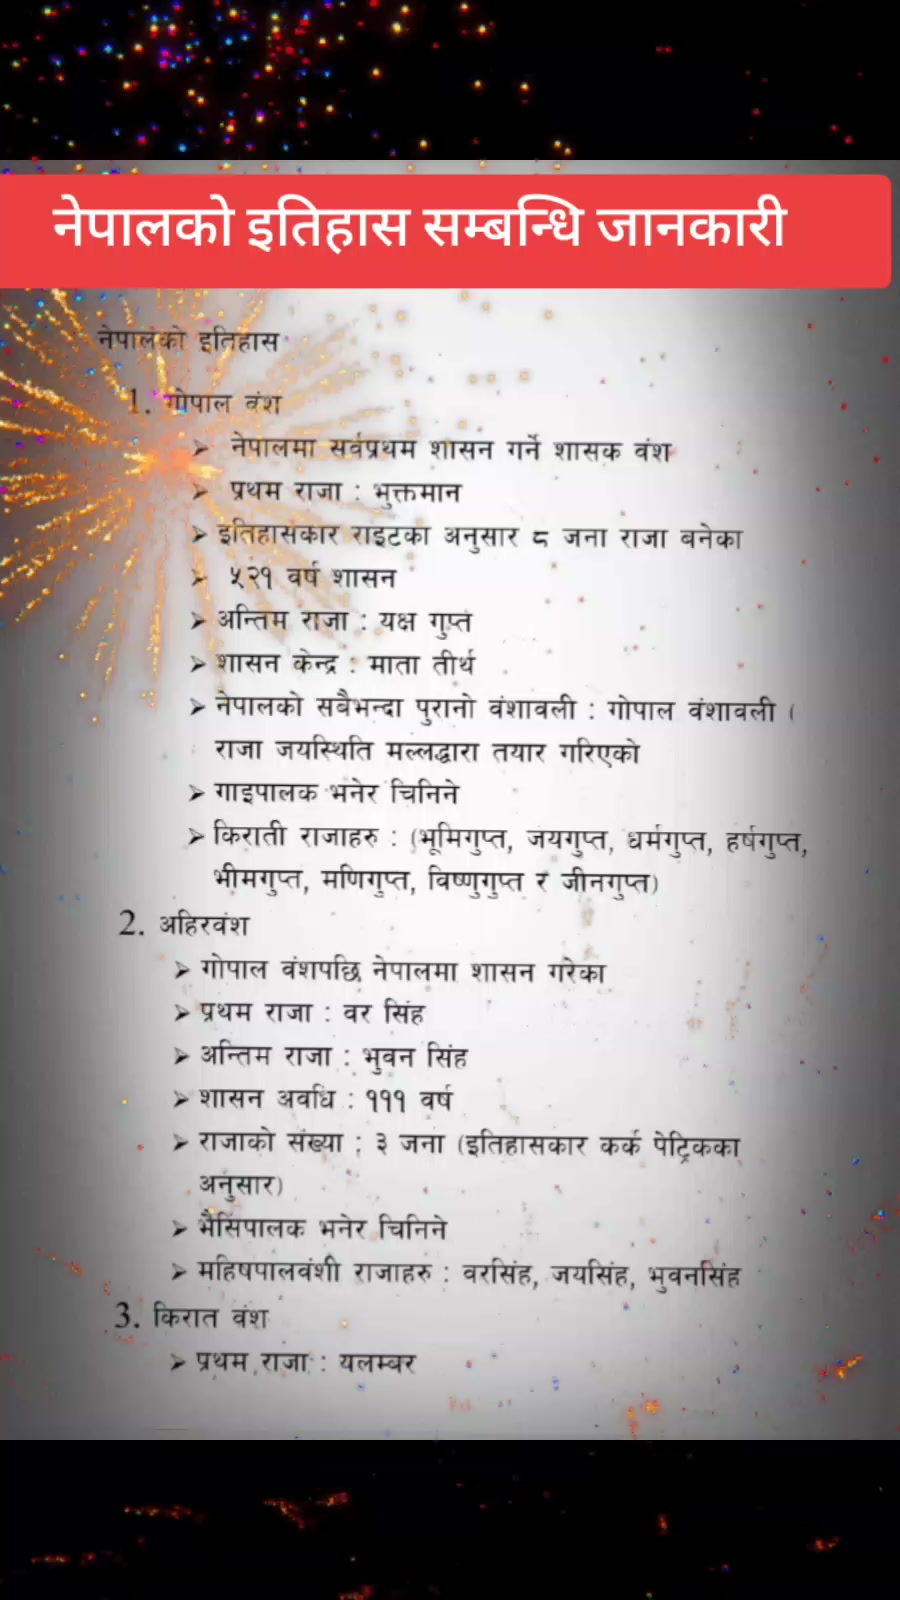 नेपालको इतिहास सम्बन्धि जानकारी
नेपालको इतिहास
1. गोपाल वंश
➢ नेपालमा सर्वप्रथम शासन गर्ने शासक वंश
➢ प्रथम राजा : भुक्तमान
➢ इतिहासकार राइटका अनुसार ८ जना राजा बनेका
➢ ५२१ वर्ष शासन
➢ अन्तिम राजा : यक्ष गुप्त
➢ शासन केन्द्र : माता तीर्थ
➢ नेपालको सबैभन्दा पुरानो वंशावली : गोपाल वंशावली (
राजा जयस्थिति मल्लद्धारा तयार गरिएको
➢ गाइपालक भनेर चिनिने
➢ किराती राजाहरु : (भूमिगुप्त, जयगुप्त, धर्मगुप्त, हर्षगुप्त,
भीमगुप्त, मणिगुप्त, विष्णुगुप्त र जीनगुप्त)
2. अहिरवंश
➢ गोपाल वंशपछि नेपालमा शासन गरेका
➢ प्रथम राजा : वर सिंह
➢ अन्तिम राजा : भुवन सिंह
➢ शासन अवधि : १११ वर्ष
➢ राजाको संख्या : ३ जना (इतिहासकार कर्क पेट्रिकका
अनुसार)
➢ भैंसिपालक भनेर चिनिने
➢ महिषपालवंशी राजाहरु : वरसिंह, जयसिंह, भुवनसिंह
3. किरात वंश
➢ प्रथम राजा : यलम्बर